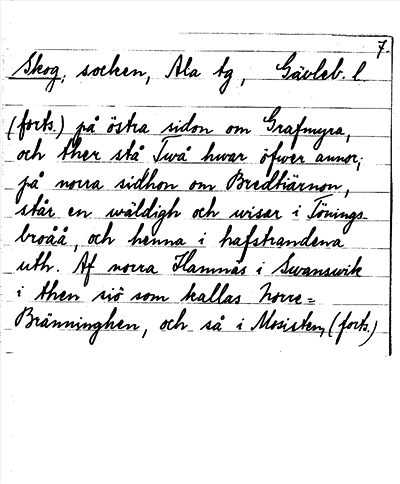 7.
Skog, socken, Ala tg, Gävleb. l
(forts.) på östra sidon om Grafmyra,
och ther stå Twå hwar öfwer annor;
på norra sidhon om Bredtiärnon,
står en wäldigh och wisar i Tönings-
broåå, och henna i hafstrandena
uth. Af norra Hamnås i Swanswik
i then siö som kallas Norre=
Bränninghen, och så i Mosisten, (forts.)